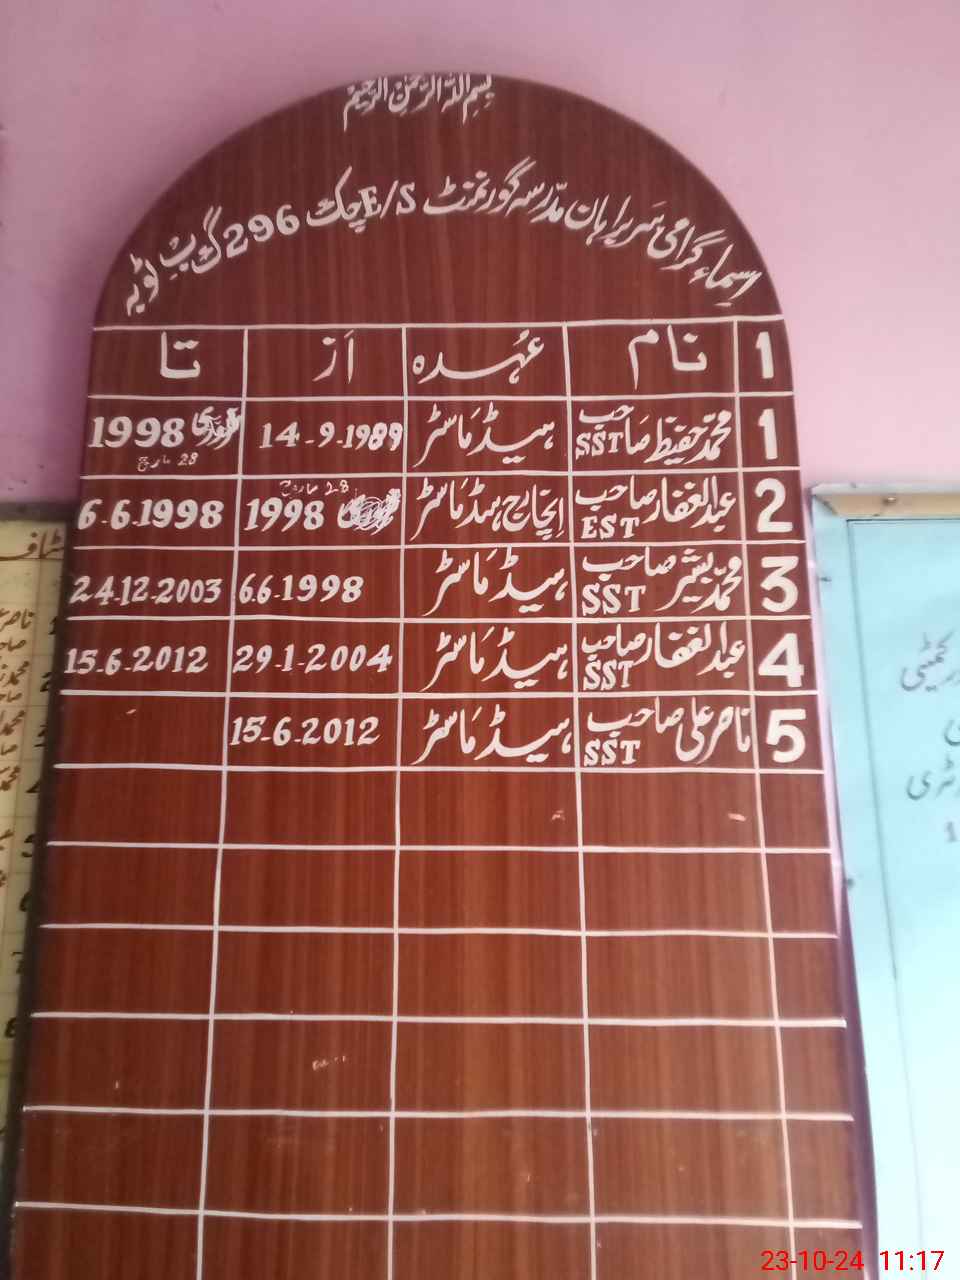 بِسْمِ اللہِ الرَّحْمٰنِ الرَّحِیْمِ
اسماءِ گرامی سربراہان مدرسہ گورنمنٹ E/S چک 296 گ ب ٹوبہ
1 نام عہدہ از تا
1 محمد حفیظ صاحب SST ہیڈ ماسٹر 14-9-1989 1998
28 مارچ
28 مارچ
2 عبدالغفار صاحب EST انچارج ہیڈ ماسٹر 1998 6-6-1998
3 محمد بشیر صاحب SST ہیڈ ماسٹر 6.6-1998 24.12-2003
4 عبدالغفار صاحب SST ہیڈ ماسٹر 29-1-2004 15-6-2012
5 ناصر علی صاحب SST ہیڈ ماسٹر 15-6-2012
23-10-24 11:17